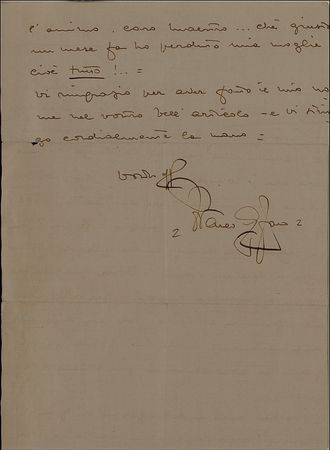 l'animo, caro maestro... chè giusto
un mese fa ho perduto mia moglie
cioè tutto !.. =
vi ringrazio per aver fatto il mio no
me nel vostro bell'articolo - e vi strin
go cordialmente la mano =
vostro